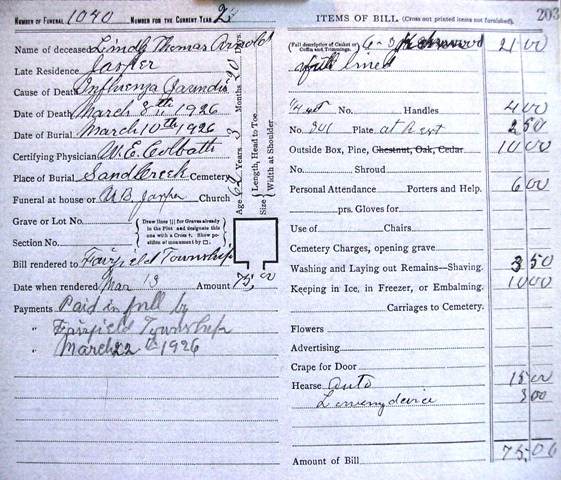 NUMBER OF FUNERAL 1040 NUMBER FOR THE CURRENT YEAR 2
Name of deceased Lindly Thomas Arnold
Late Residence Jasper
Cause of Death Influenza
Date of Death March 8th, 1926
Date of Burial March 10th 1926
Certifying Physician W.E. Colbath
Place of Burial Sand Creek Cemetery
Funeral at house or U.B. Jasper Church
Grave or Lot No.
Draw lines ||| for Graves already in the Plot and designate this one with a Cross †. Show position of monument by □.
Section No.
Bill rendered to Fairfield Township
Date when rendered Mar 13 Amount 75,00
Payments Paid in full by
" Fairfield Township
" March 22 th 1926
Age 62 Years 3 Months 20 Days.
Size { Length, Head to Toe
Width at Shoulder
ITEMS OF BILL. (Cross out printed items not furnished). 203
(Full description of Casket or Coffin and Trimmings. 6-3 21 00
lined
No. Handles 4 00
No. 301 Plate at Rest 2 50
Outside Box, Pine, Chestnut, Oak, Cedar 10 00
No. Shroud
Personal Attendance Porters and Help. 6 00
prs. Gloves for
Use of Chairs
Cemetery Charges, opening grave
Washing and Laying out Remains—Shaving. 3 50
Keeping in Ice, in Freezer, or Embalming. 10 00
Carriages to Cemetery.
Flowers
Advertising
Crape for Door
Hearse Auto 15 00
Lowering device 3 00
Amount of Bill 75,00